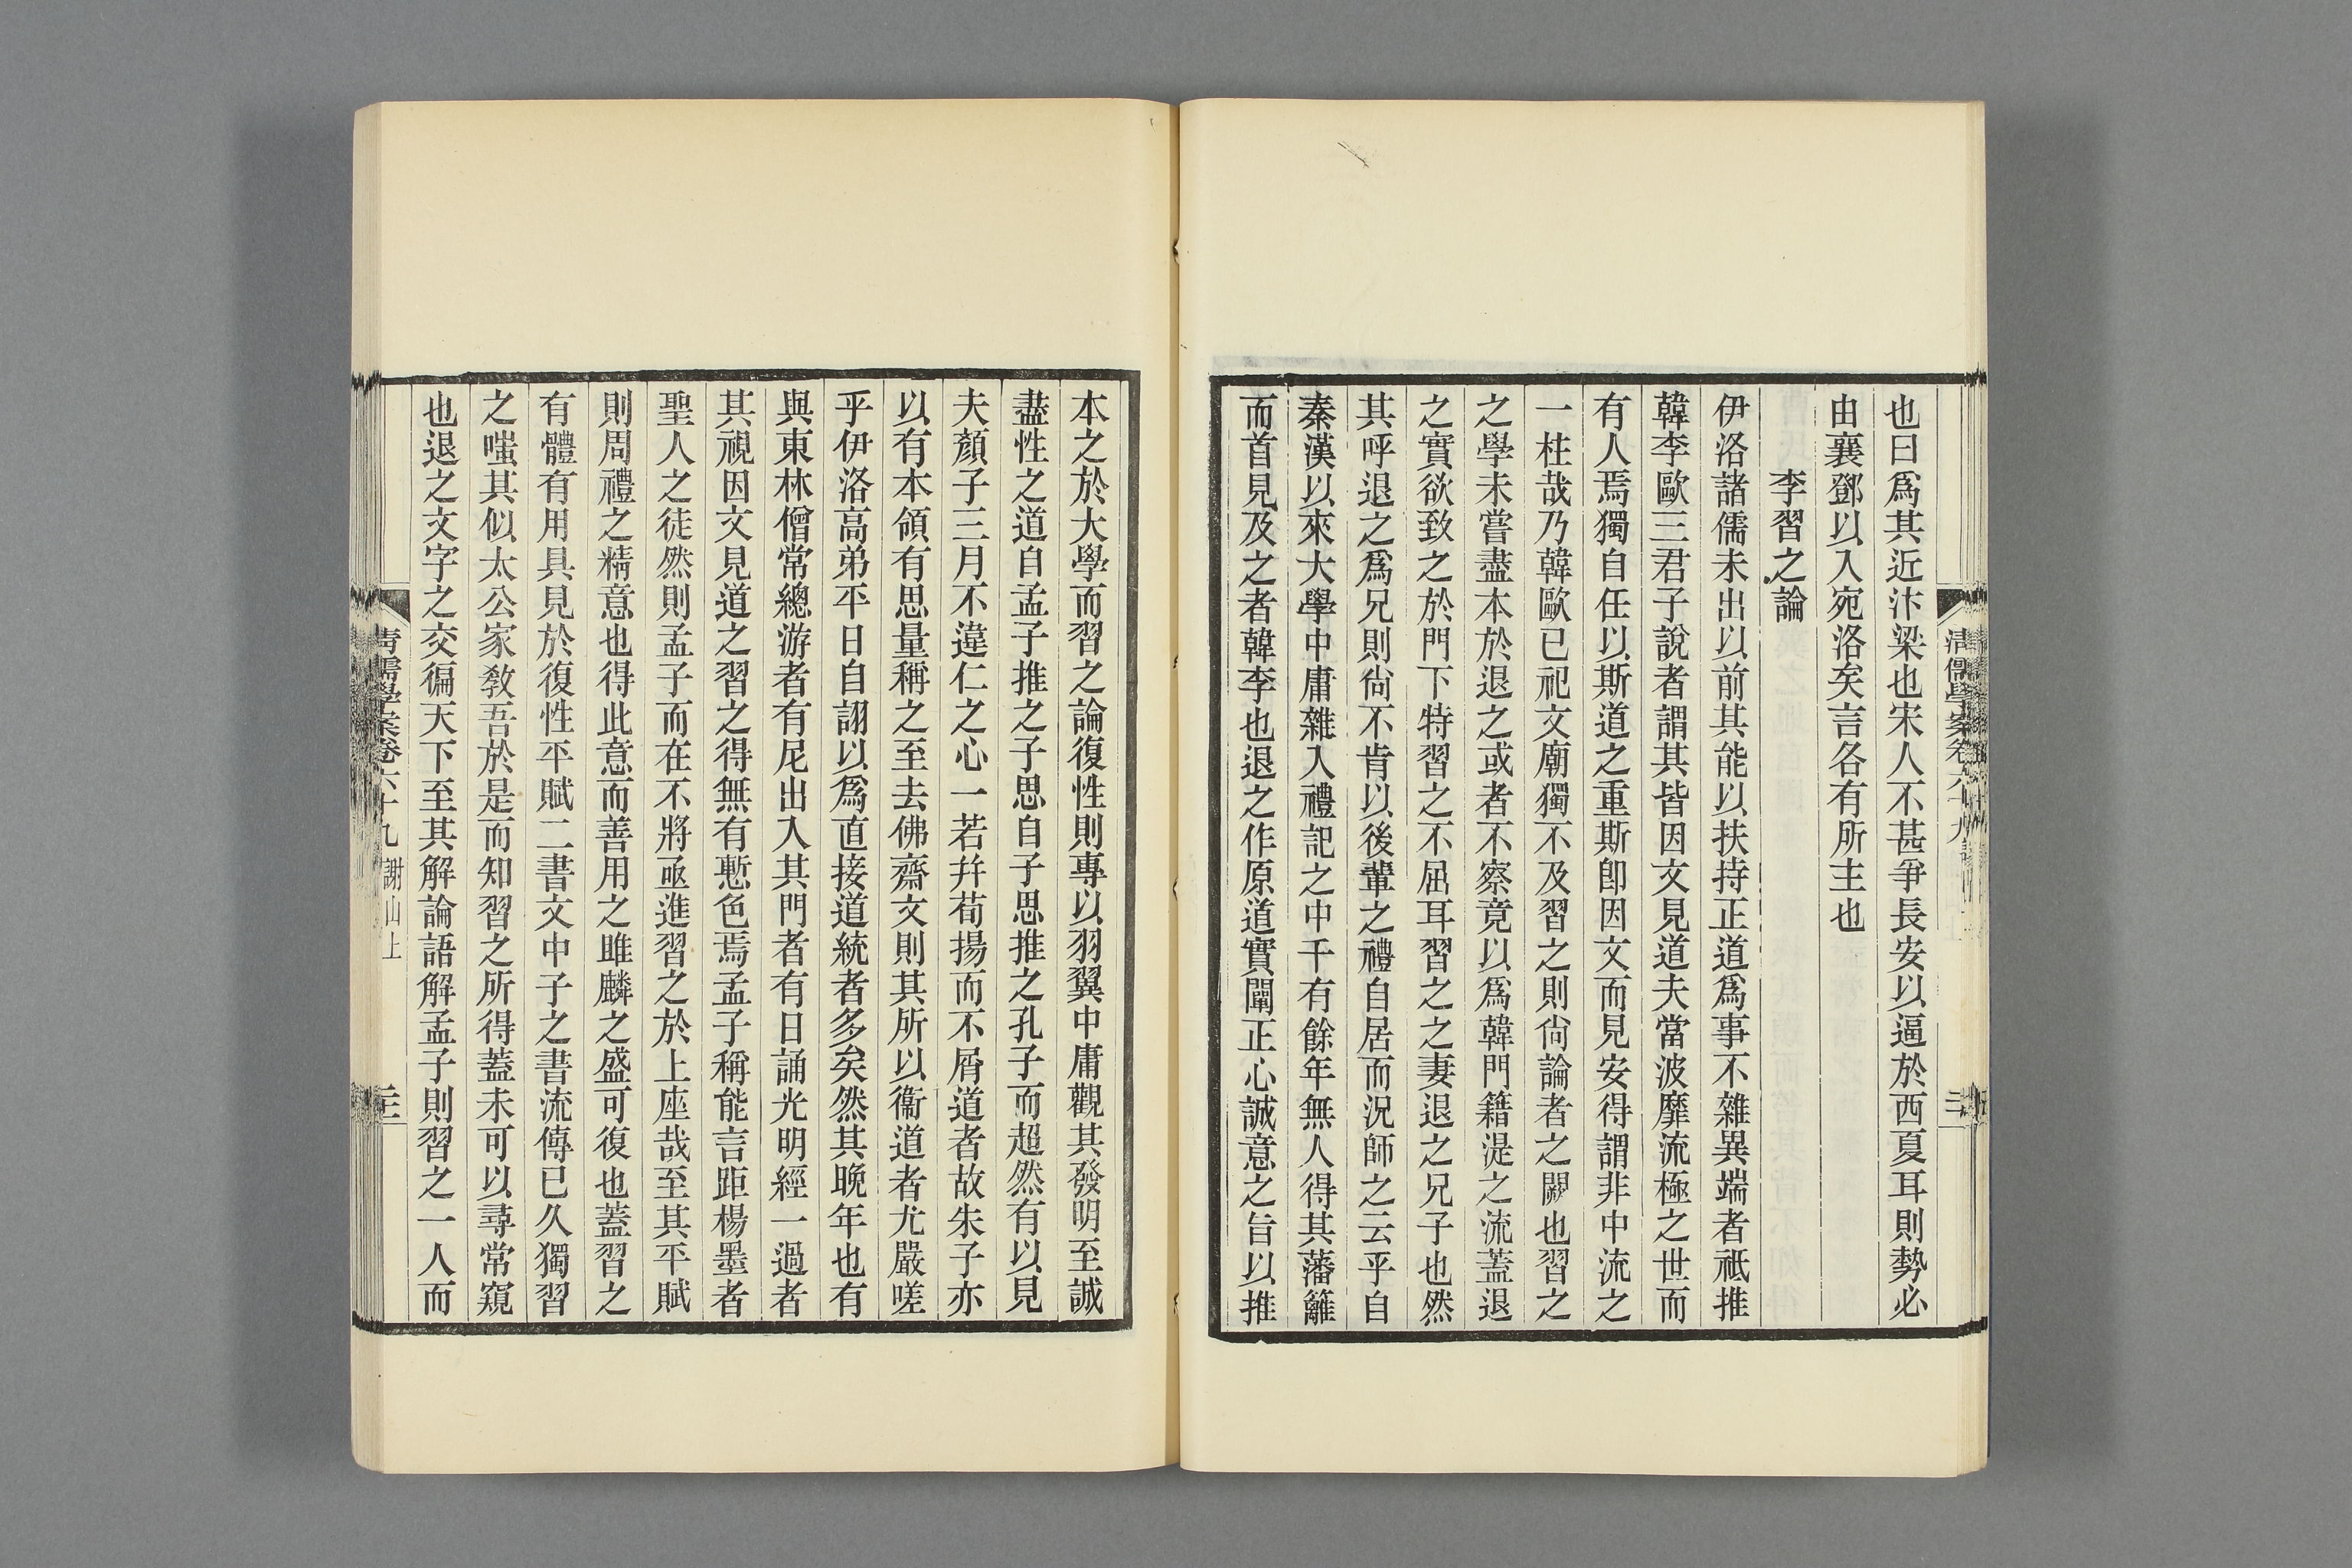 也曰爲其近汴梁也宋人不甚爭長安以逼於西夏耳則勢必
由襄鄧以入宛洛矣言各有所主也
李習之論
伊洛諸儒未出以前其能以扶持正道爲事不雜異端者祗推
韓李歐三君子說者謂其皆因文見道夫當波靡流極之世而
有人焉獨自任以斯道之重斯卽因文而見安得謂非中流之
一柱哉乃韓歐已祀文廟獨不及習之則尙論者之闕也習之
之學未嘗盡本於退之或者不察竟以爲韓門籍湜之流蓋退
之實欲致之於門下特習之不屈耳習之之妻退之兄子也然
其呼退之爲兄則尙不肯以後輩之禮自居而況師之云乎自
秦漢以來大學中庸雜入禮記之中千有餘年無人得其藩籬
而首見及之者韓李也退之作原道實闡正心誠意之旨以推
本之於大學而習之論復性則專以羽翼中庸觀其發明至誠
盡性之道自孟子推之子思自子思推之孔子而超然有以見
夫顏子三月不違仁之心一若幷荀揚而不屑道者故朱子亦
以有本領有思量稱之至去佛齋文則其所以衞道者尤嚴嗟
乎伊洛高弟平日自詡以爲直接道統者多矣然其晚年也有
與東林僧常總游者有尼出入其門者有日誦光明經一過者
其視因文見道之習之得無有慙色焉孟子稱能言距楊墨者
聖人之徒然則孟子而在不將亟進習之於上座哉至其平賦
則周禮之精意也得此意而善用之雎麟之盛可復也蓋習之
有體有用具見於復性平賦二書文中子之書流傳已久獨習
之嗤其似太公家敎吾於是而知習之所得蓋未可以尋常窺
也退之文字之交徧天下至其解論語解孟子則習之一人而
清儒學案卷六十九 謝山上